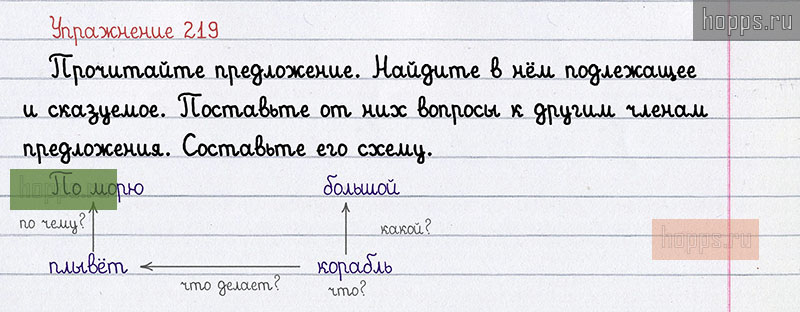 Упражнение 219
hopps.ru
Прочитайте предложение. Найдите в нём подлежащее
и сказуемое. Поставьте от них вопросы к другим членам
предложения. Составьте его схему.
По морю большой
по чему? какой?
hopps.ru
плывёт корабль
что делает? что?